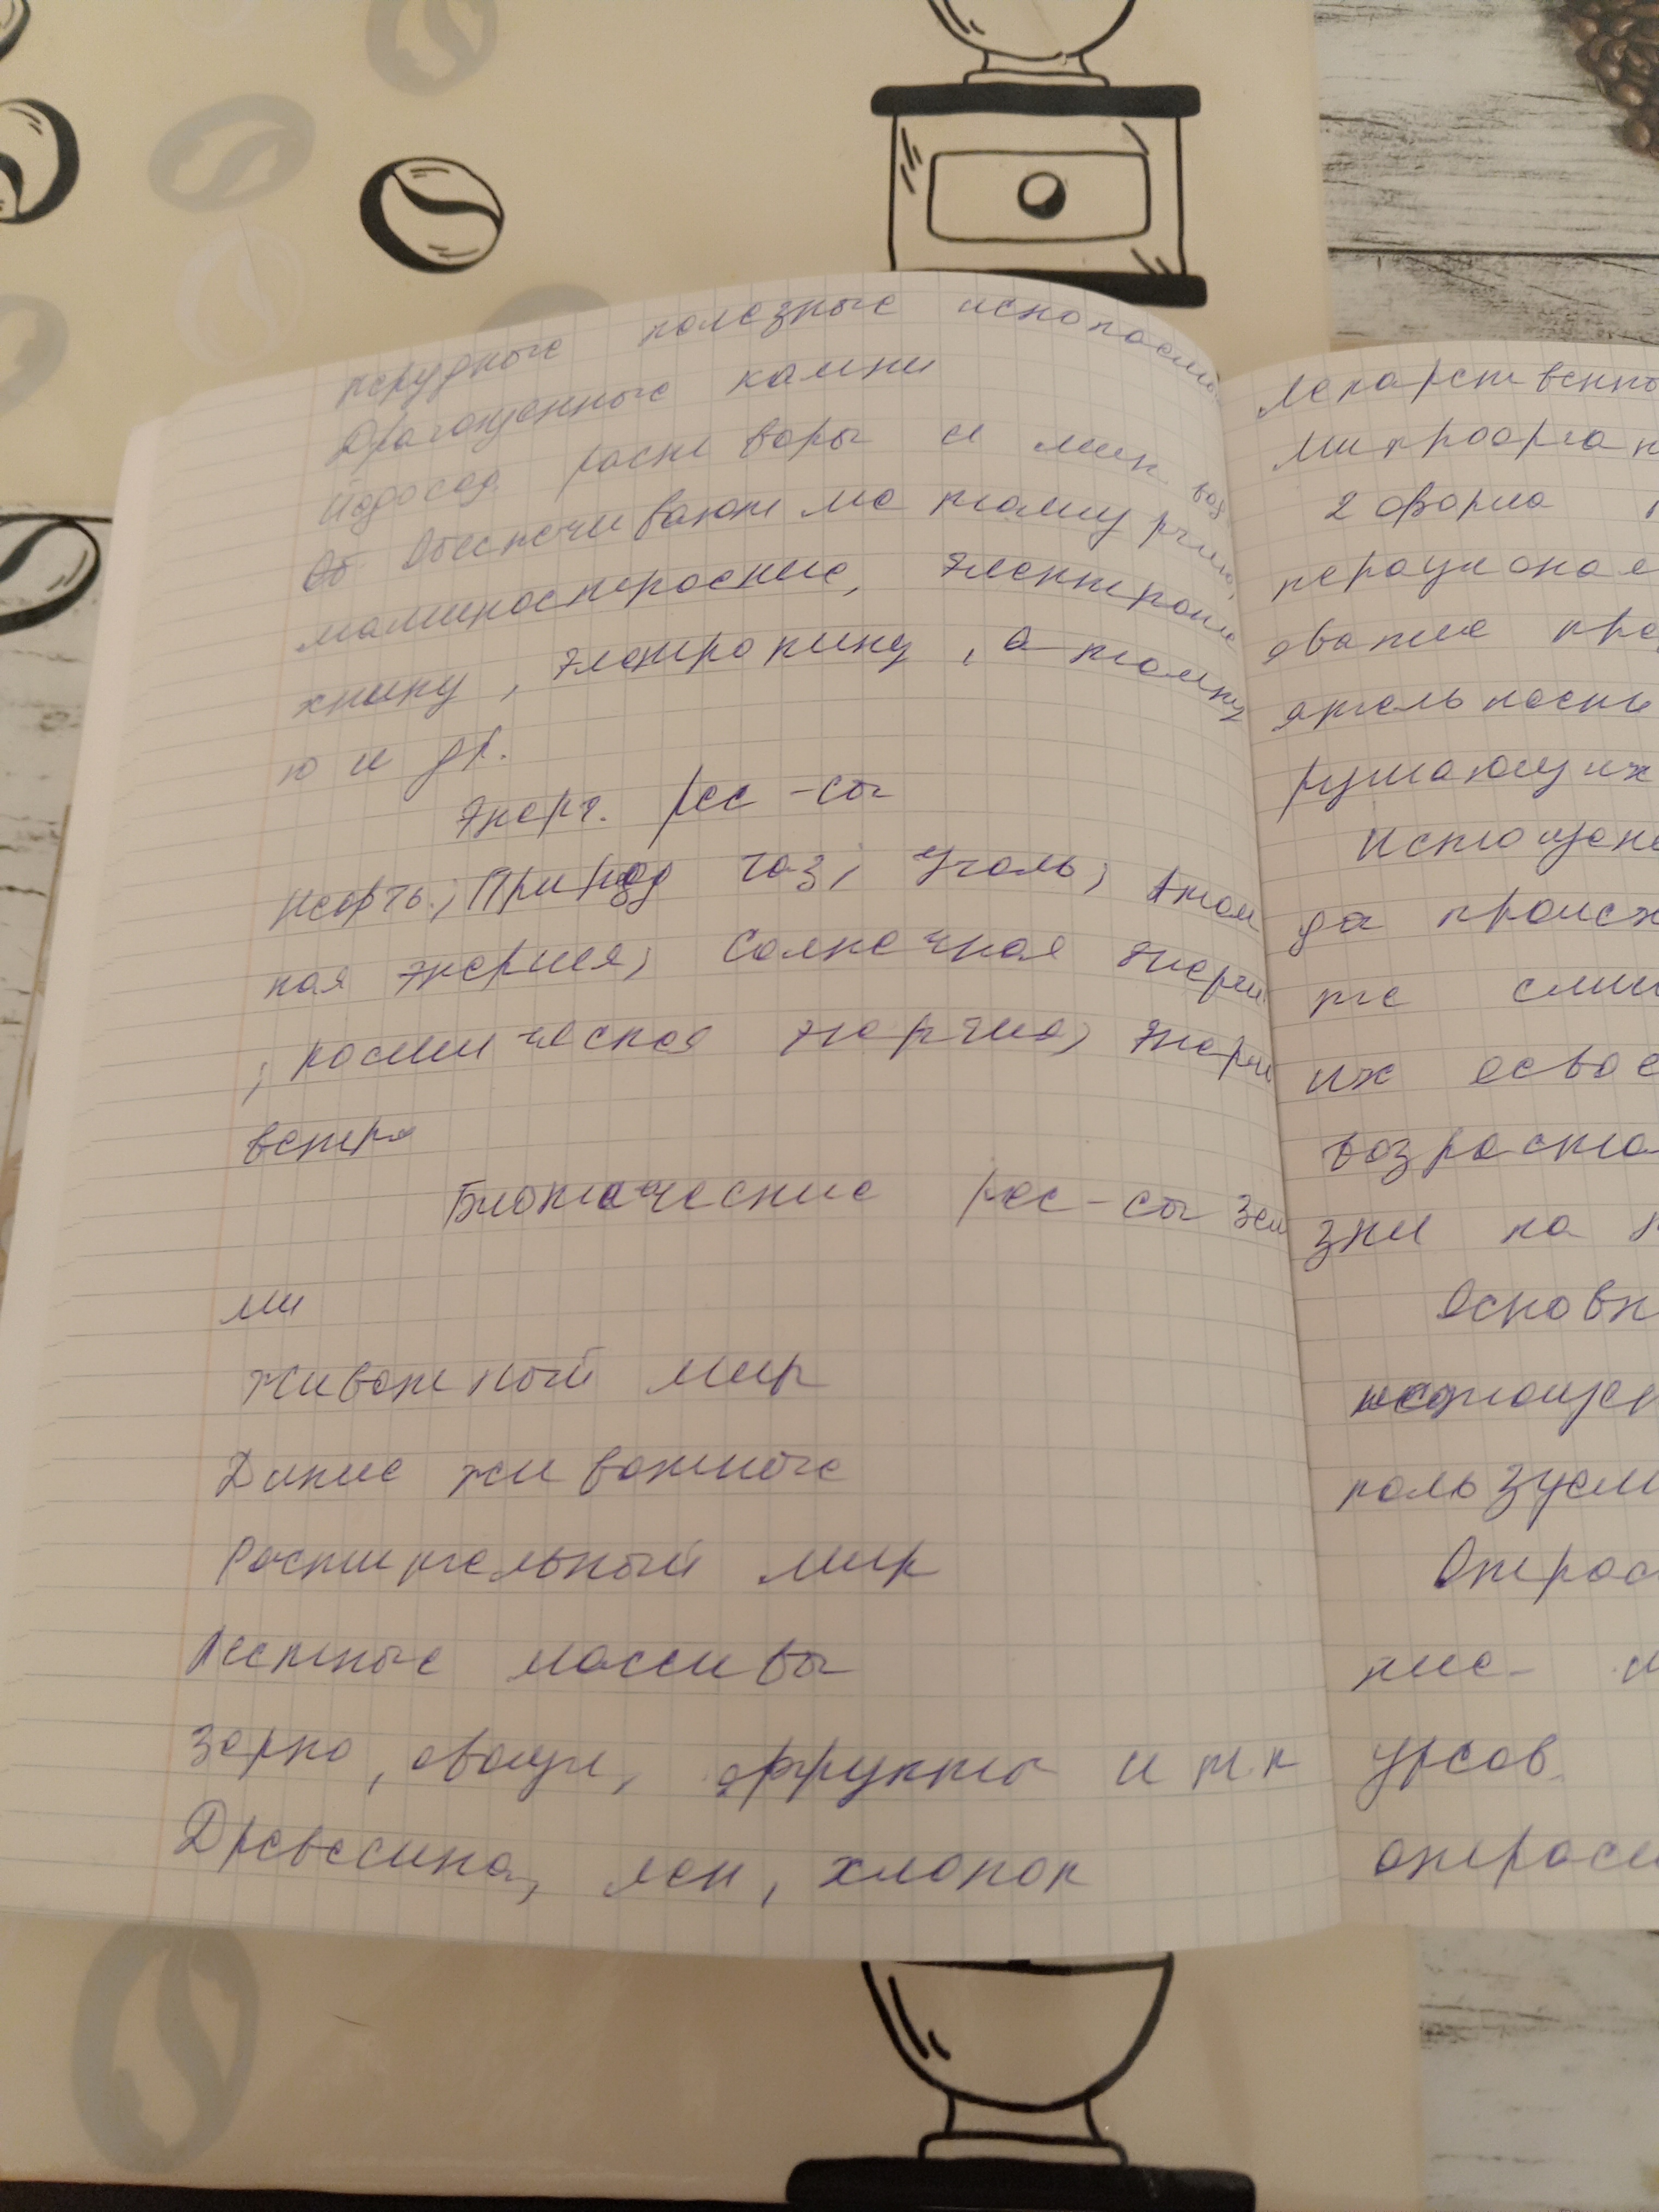 нерудные полезные ископаем
Драгоценные камни
Водосод. растворы и мин вод
Об Обеспечивают металлургию,
машиностроение, электроте
хнику, электронику, атомну
ю и др.
Энерг. рес-сы
Нефть; Природ газ; Уголь; Атом
ная энергия; Солнечная энерги
; космическая энергия; Энерги
ветра
Биотические рес-сы Зем
ли
Животный мир
Дикие животные
Растительный мир
Лесные массивы
Зерно, овощи, фрукты и т.п
Древесина, лен, хлопок
Лекарственны
Микроорган
2 форма
нерационал
ование при
ятельности
рушающих
Истощени
да происх
те
их освое
возраста
зни на
Основн
истощен
пользуем
Отрас
ние
урсов.
отрасл